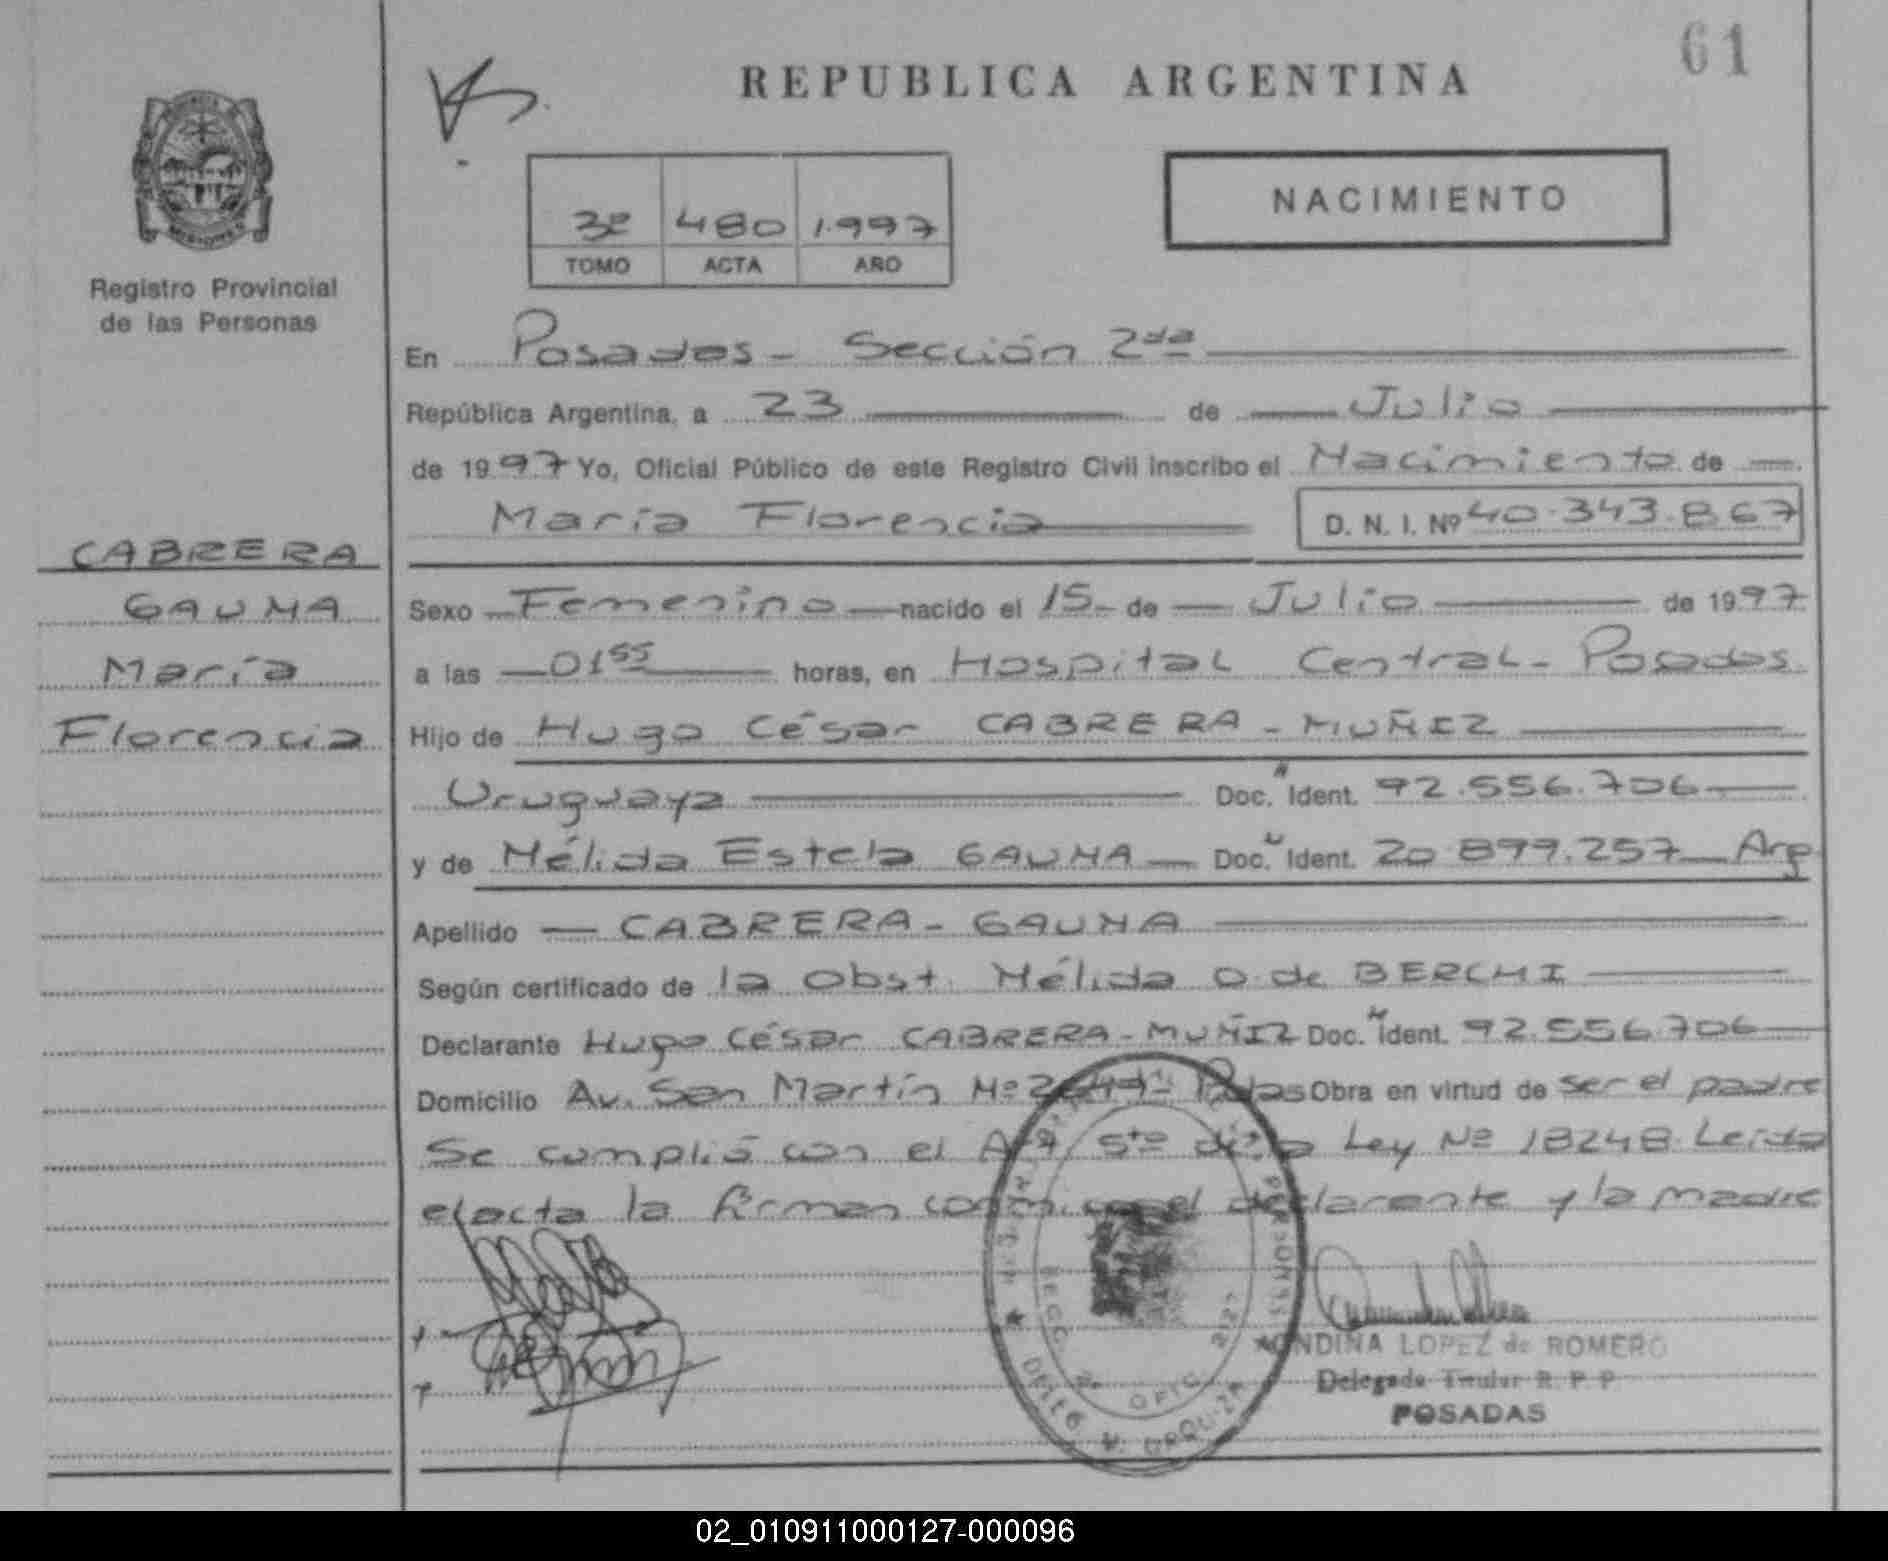 61
REPUBLICA ARGENTINA
NACIMIENTO
3º 480 1.997
TOMO ACTA AÑO
MISIONES
Registro Provincial
de las Personas
CABRERA
GAUNA
María
Florencia
En Posadas - Sección 2da
República Argentina, a 23 de Julio
de 1997 Yo, Oficial Público de este Registro Civil inscribo el Nacimiento de
María Florencia D. N. I. Nº 40.343.867
Sexo Femenino nacido el 15 de Julio de 1997
a las 01 55 horas, en Hospital Central - Posadas
Hijo de Hugo César CABRERA - MUÑIZ
Uruguaya Doc. Ident. 92.556.706
y de Nélida Estela GAUNA Doc. Ident. 20.899.257 Arg
Apellido CABRERA - GAUNA
Según certificado de la Obst. Nélida O. de BERCHI
Declarante Hugo César CABRERA - MUÑIZ Doc. Ident. 92.556.706
Domicilio Av. San Martín Nº Pdas Obra en virtud de ser el padre
Se cumplió con el Art 5to de la Ley Nº 18248. Leída
el acta la firman conmigo el declarante y la madre
ONDINA LOPEZ de ROMERO
Delegada Titular R. P. P.
POSADAS
SECC. 2ª OFIC.
Dpto. URQUIZA
02_010911000127-000096